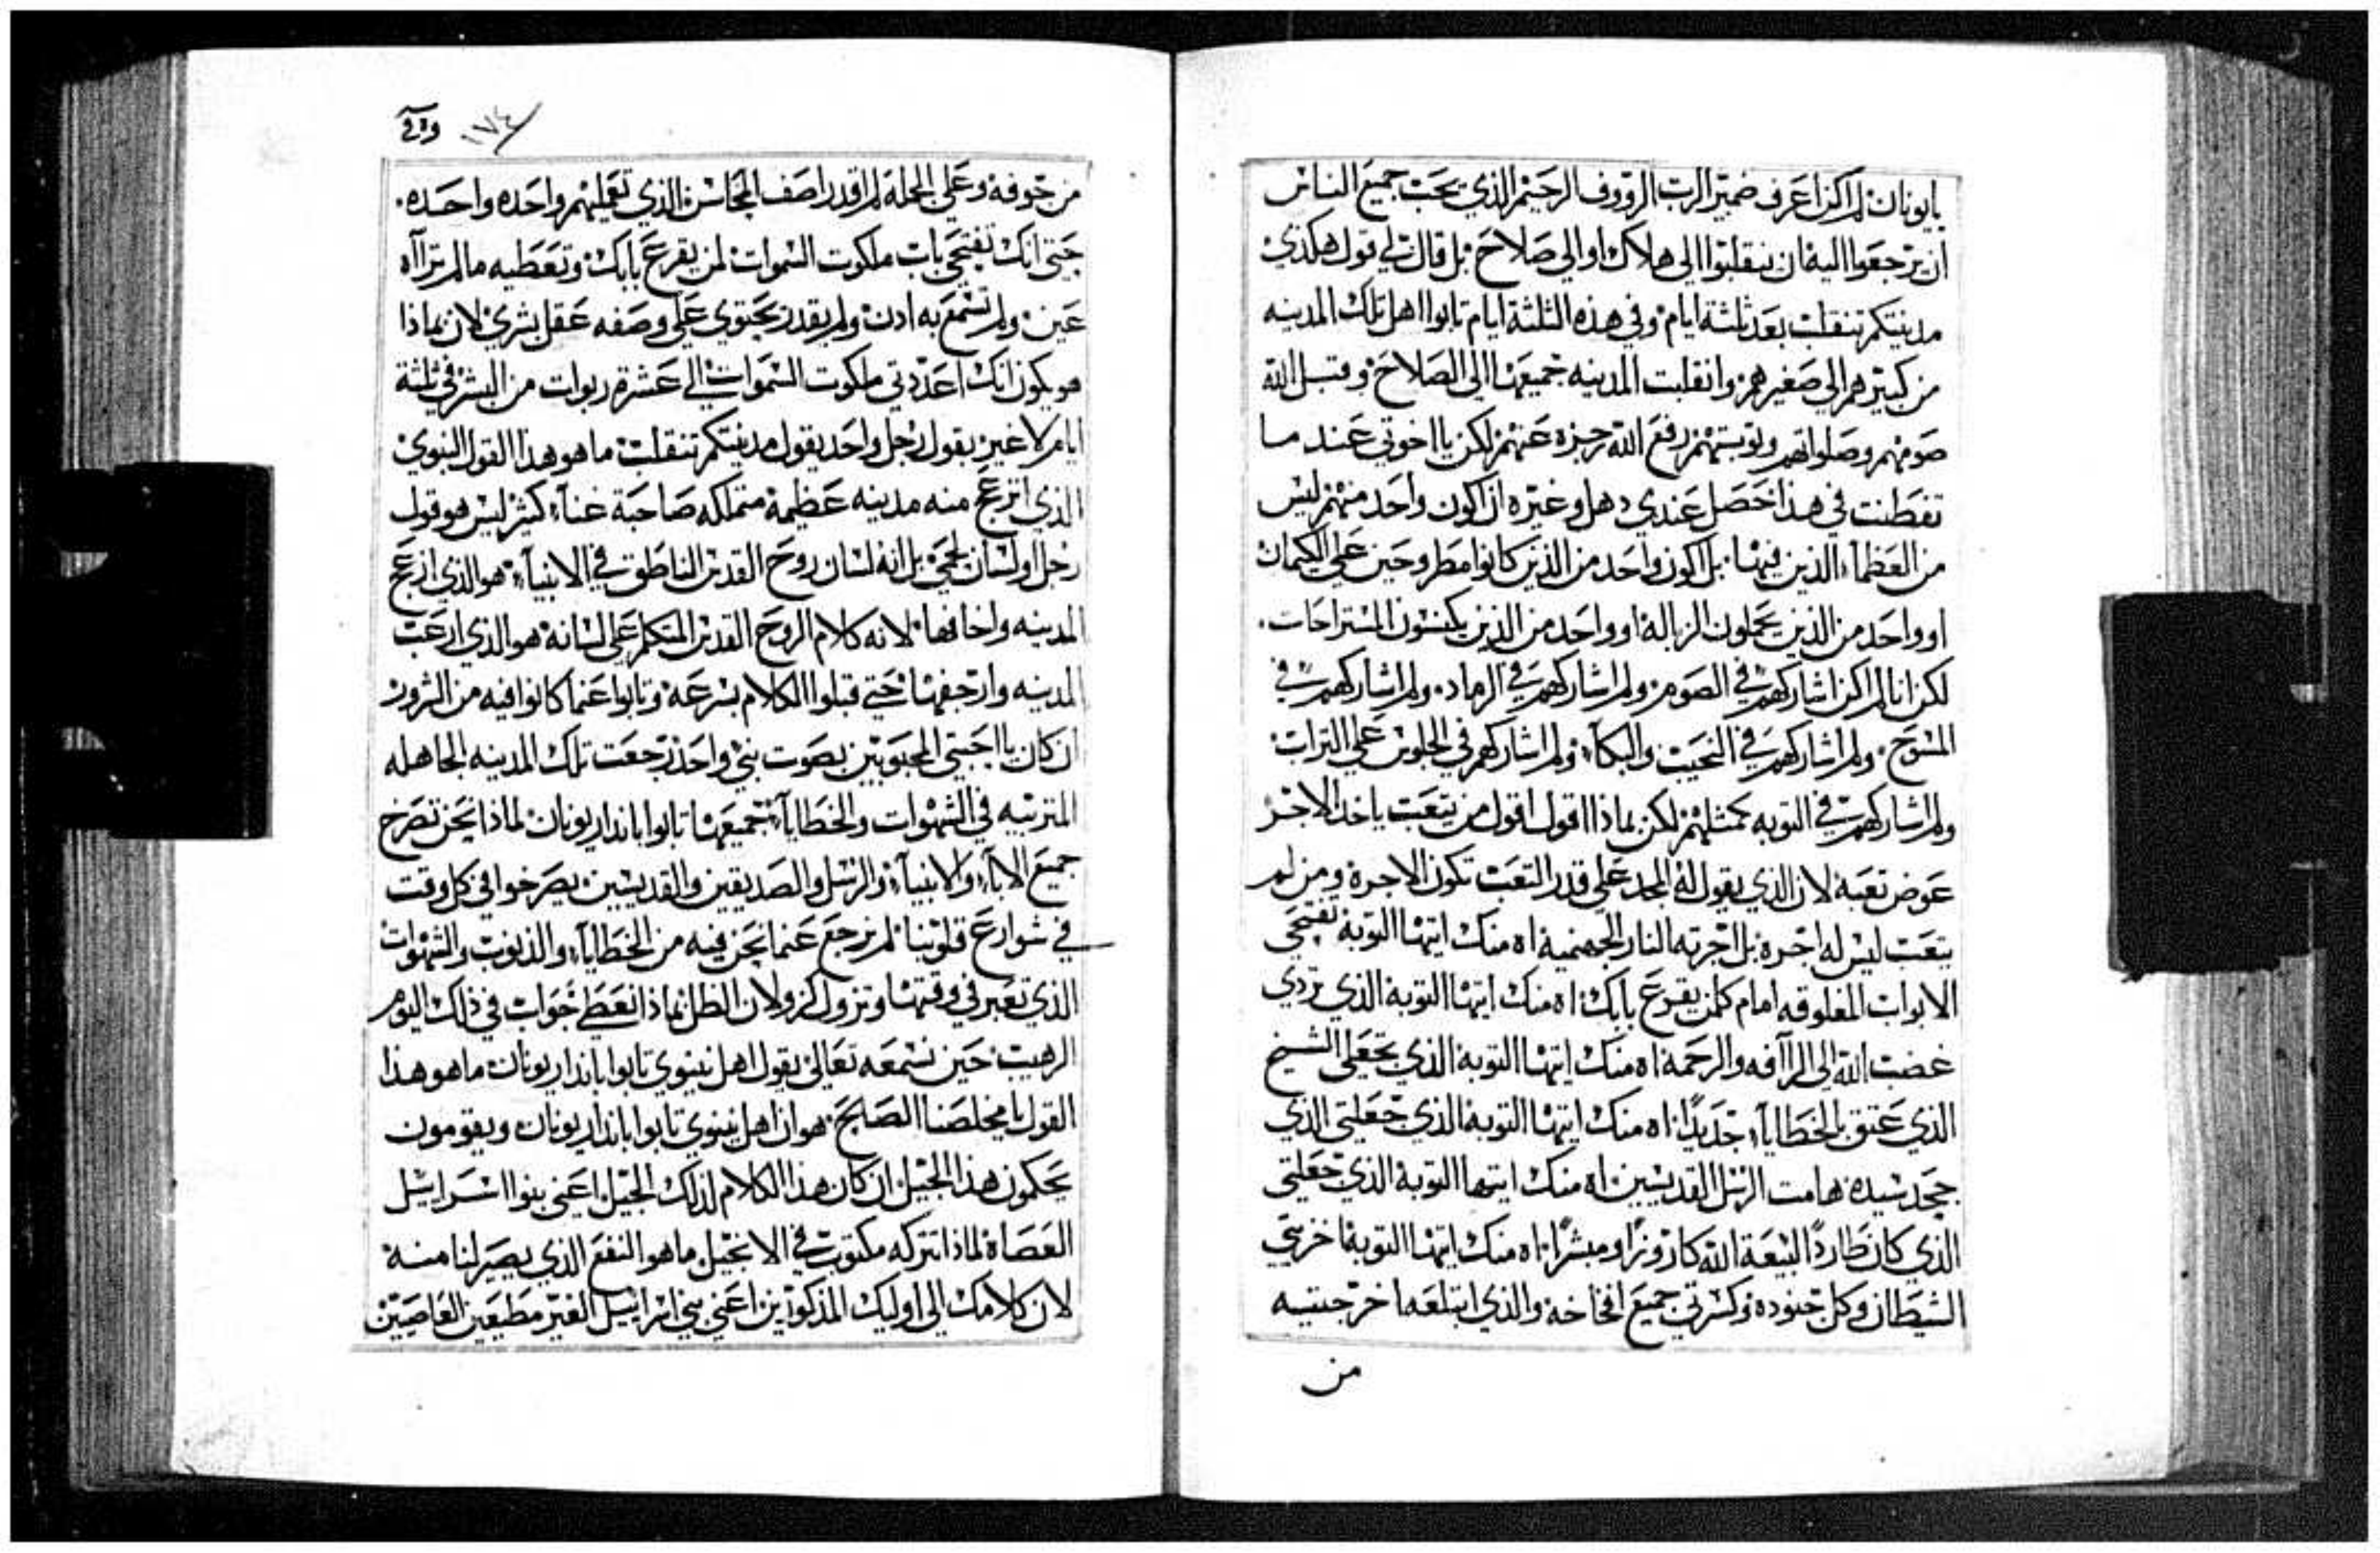 يايونان لم اكن اعرف ضمير الرب الرووف الرحيم الذي يحب جميع الناس
ان يرجعوا اليه ان ينقلبوا الي هلاك او الي صلاح بل قال لي قول هكذي
مدينتكم تنقلب بعد ثلثة ايام وفي هذه الثلثة ايام تابوا اهل تلك المدينه
من كبيرهم الي صغيرهم وانقلبت المدينه جميعها الي الصلاح وقبل الله
صومهم وصلواتهم وتوبتهم رفع الله رجزه عنهم لكن يااخوتي عند ما
تفطنت في هذا حصل عندي دهل وغيره ان اكون واحد منهم ليس
من العظماء الذين فيها بل اكون واحد من الذين كانوا مطروحين علي الكيمان
او واحد من الذين يحملون الزباله او واحد من الذين يكنسون المستراحات.
لكن انا لم اكن اشاركهم في الصوم ولم اشاركهم في الرماد ولم اشاركهم في
المسوح ولم اشاركهم في النحيب والبكاء ولم اشاركهم في الجلوس علي التراب
ولم اشاركهم في التوبه كمثلهم لكن بماذا اقول اقول من يتعب ياخذ الاجر
عوض تعبه لان الذي يقول له المجد علي قدر التعب تكون الاجره ومن لم
يتعب ليس له اجره بل اجرته النار الجهنميه اه منك ايتها التوبه تفتحي
الابواب المغلوقه امام كلمن يقرع بابك اه منك ايتها التوبه الذي تردي
غضب الله الي الرآفه والرحمه اه منك ايتها التوبه الذي تجعلي الشيخ
الذي عتق بالخطايا جديدًا اه منك ايتها التوبه الذي جعلتي الذي
جحد سيده هامت الرسل القديسين اه منك ايتها التوبه الذي جعلتي
الذي كان طاردًا لبيعة الله كاروزًا ومبشرًا اه منك ايتها التوبه اخزيتي
الشيطان وكل جنوده وكسرتي جميع افخاخه والذي ابتلعه اخرجتيه
من
١٧٤
من جوفه وعلي الجمله لم اقدر اصف المحاسن الذي تعمليهم واحده واحده.
حتي انك تفتحي باب ملكوت السموات لمن يقرع بابك وتعطيه مالم تراه
عين ولم تسمع به ادن ولم يقدر يحتوي علي وصفه عقل بشري لان بماذا
هو يكون انك اعددتي ملكوت السموات الي عشرة ربوات من البشر في ثلثة
ايام لا غير بقول رجل واحد يقول مدينتكم تنقلب ما هو هذا القول النبوي
الذي انزعج منه مدينه عظيمه متملكه صاحبة غناء كثير ليس هو قول
رجل او لسان لحمي بل انه لسان روح القدس الناطق في الانبياء هو الذي ازعج
المدينه واخافها لانه كلام الروح القدس المتكلم علي لسانه هو الذي ارعب
المدينه وارجفها حتي قبلوا الكلام بسرعه وتابوا عنما كانوا فيه من الشرور
ان كان يااحبتي المحبوبين بصوت نبي واحد رجعت تلك المدينه الجاهله
المتربيه في الشهوات والخطايا جميعها تابوا بانذار يونان لماذا نحن تصرخ
جميع الاباء والانبياء والرسل والصديقين والقديسين يصرخوا في كل وقت
في شوارع قلوبنا لم نرجع عنما نحن فيه من الخطايا والذنوب والشهوات
الذي تعبر في وقتها وتزول كزولان الظل بماذا نعطي جواب في ذلك اليوم
الرهيب حين نسمعه تعالي يقول اهل نينوي تابوا بانذار يونان ما هو هذا
القول يامخلصنا الصالح هو ان اهل نينوي تابوا بانذار يونان ويقومون
يحكمون هذا الجيل ان كان هذا الكلام لذلك الجيل اعني بنوا اسراييل
العصاة لماذا تتركه مكتوب في الانجيل ما هو النفع الذي يصير لنا منه
لان كلامك الي اوليك المذكورين اعني بني اسراييل الغير مطيعين العاصيين